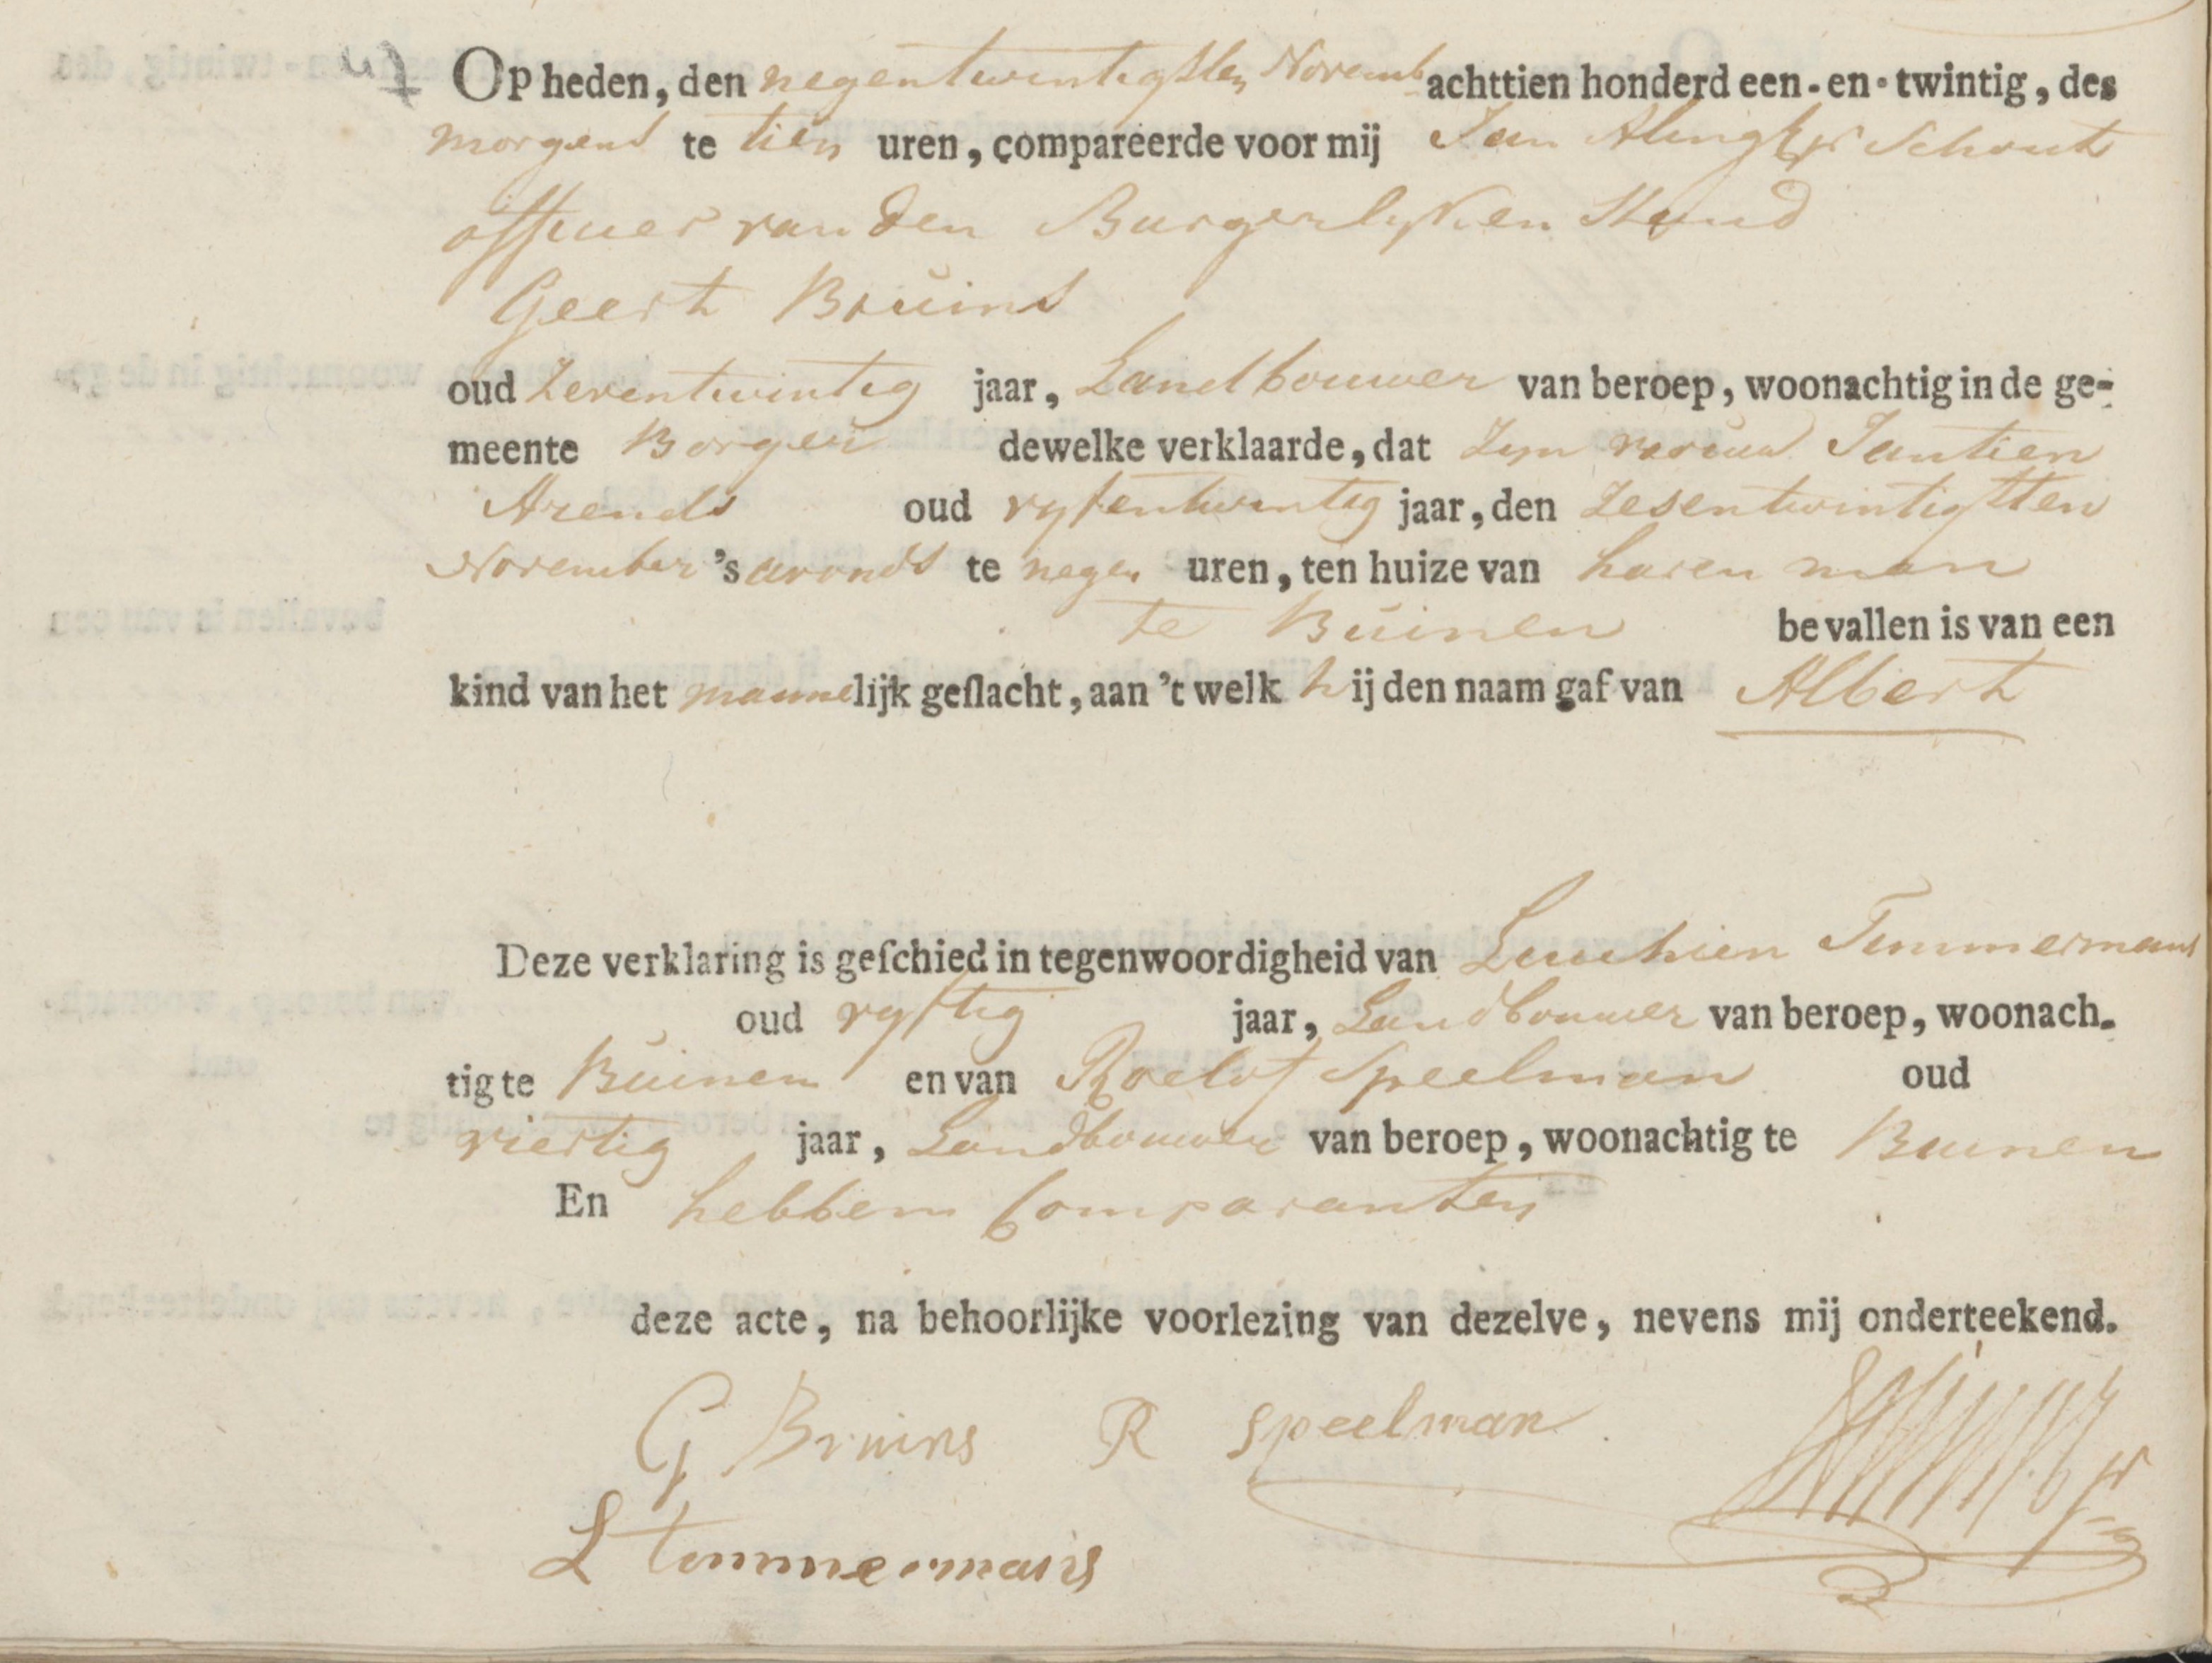 Op heden, den negentwintigsten Novemb achttien honderd een-en-twintig, des
morgens te tien uren, compareerde voor mij Jan Alingh Jr Schout
officier van den Burgerlyken Stand
Geert Bruins
oud Zeventwintig jaar, Landbouwer van beroep, woonachtig in de ge-
meente Borger dewelke verklaarde, dat zyn vrouw Jantien
Arends oud vyfentwintig jaar, den Zesentwintigsten
November 's avonds te negen uren, ten huize van haren man
te Buinen bevallen is van een
kind van het mannelijk geslacht, aan 't welk hij den naam gaf van Albert
Deze verklaring is geschied in tegenwoordigheid van Luichien Timmermans
oud vyftig jaar, Landbouwer van beroep, woonach-
tig te Buinen en van Roelof Speelman oud
viertig jaar, Landbouwer van beroep, woonachtig te Buinen
En hebben Comparanten
deze acte, na behoorlijke voorlezing van dezelve, nevens mij onderteekend.
G Bruins R Speelman
L timmermans